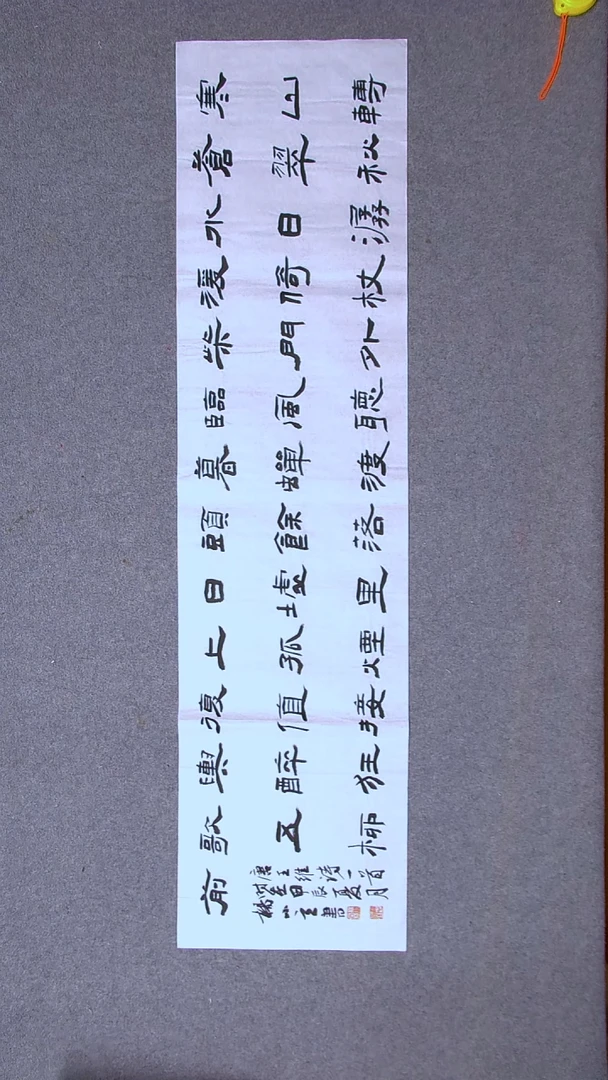 寒山轉
蒼翠秋
水日潺
湲倚杖
柴門外
臨風聽
暮蟬渡
頭餘落
日墟里
上孤煙
復值接
輿醉狂
歌五柳
前
唐王維詩一首
在甲辰夏月
楊小書